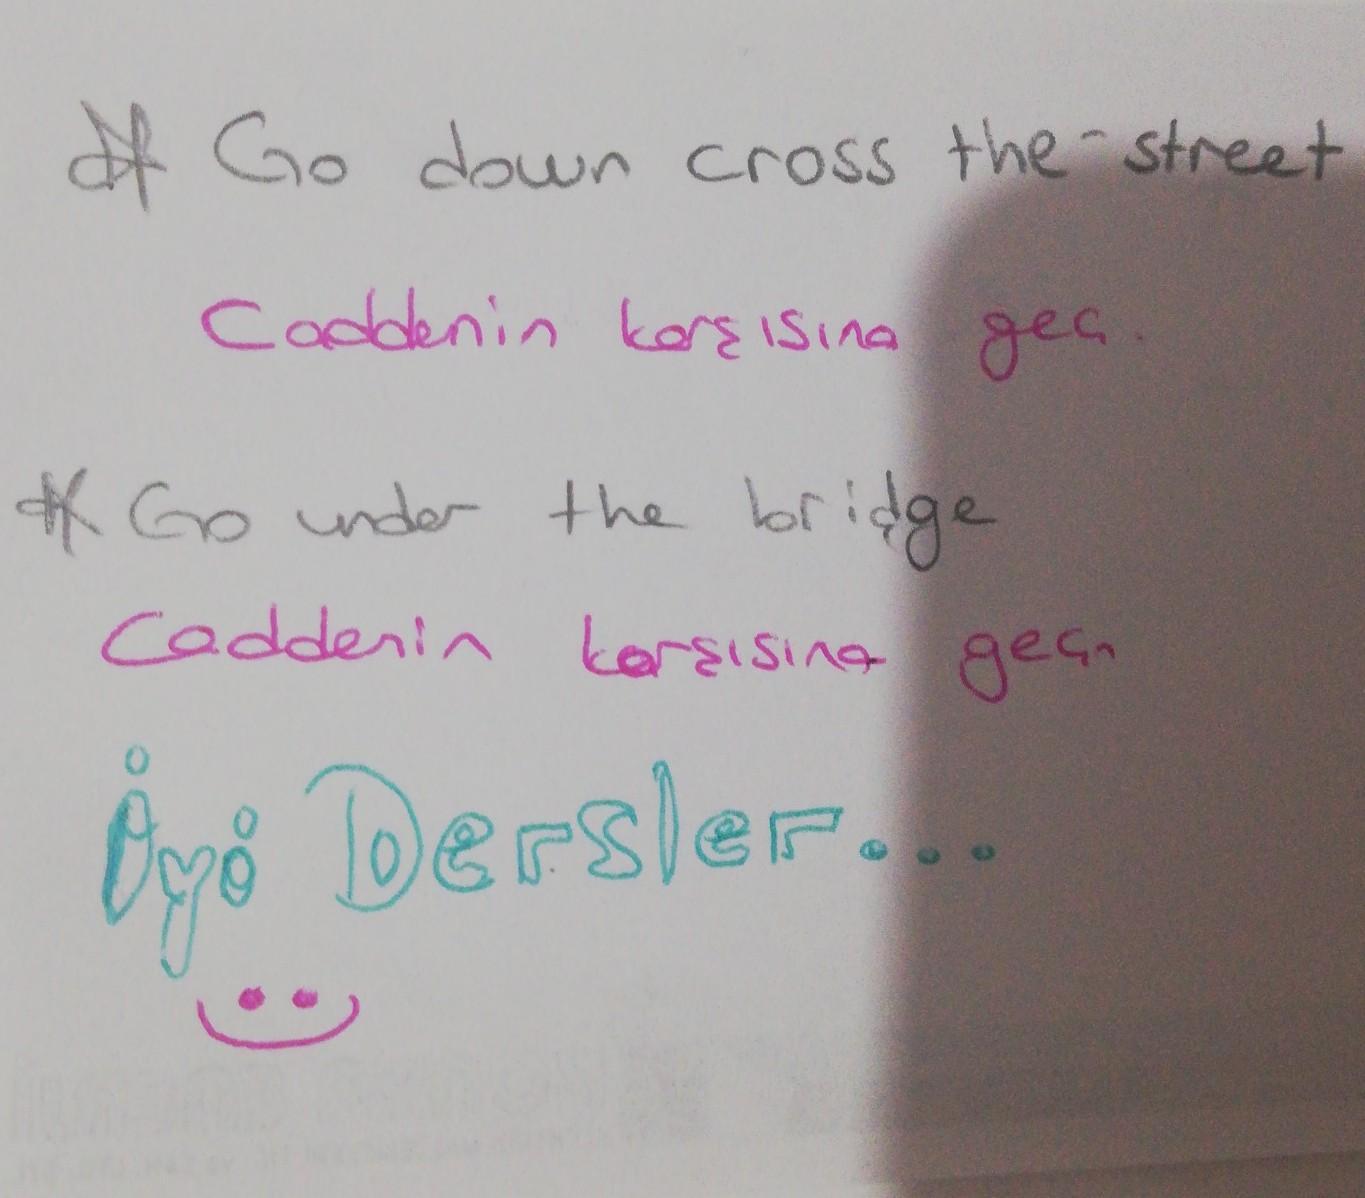 * Go down cross the street
Caddenin karşısına geç.
* Go under the bridge
Caddenin karşısına geç.
İyi Dersler...